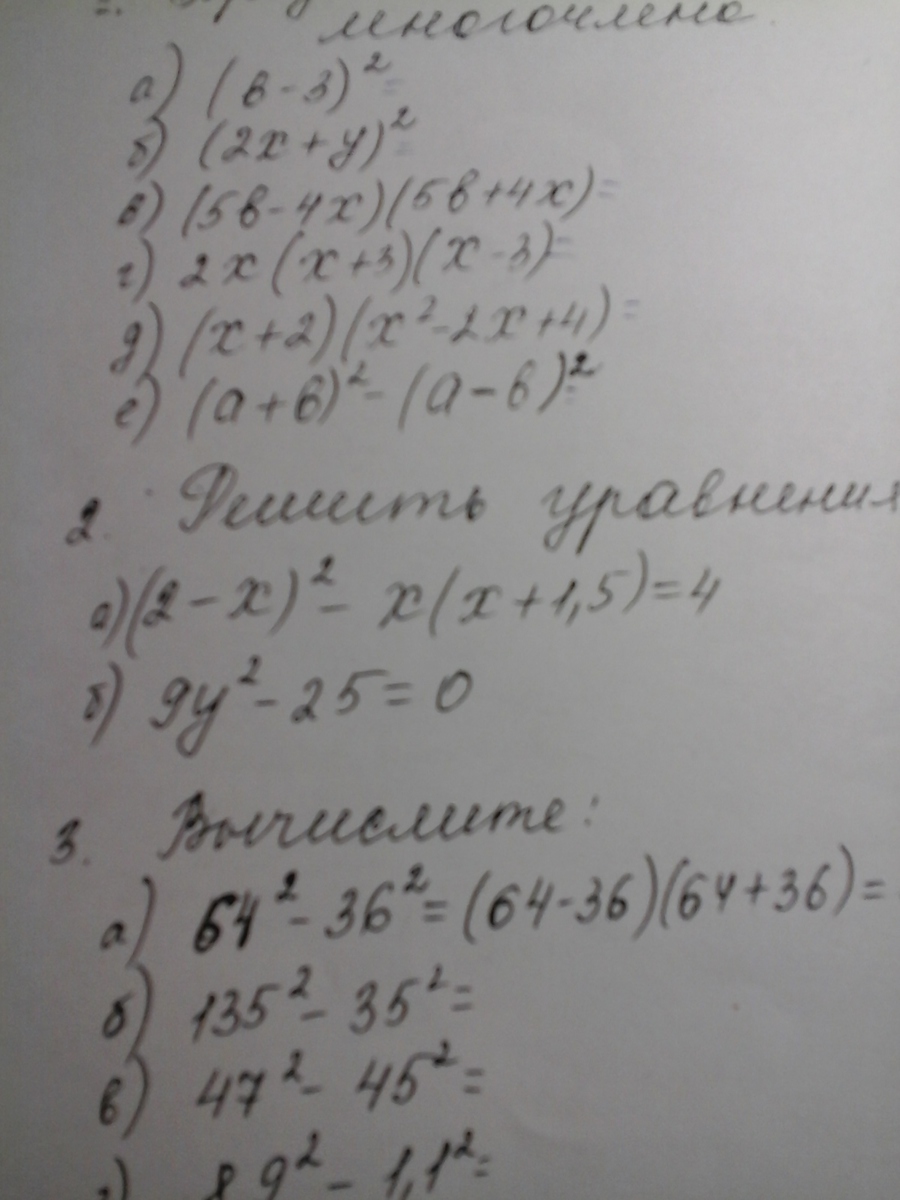 многочлена
а) (в-3)²=
б) (2x+y)²=
в) (5в-4x)(5в+4x)=
г) 2x(x+3)(x-3)=
д) (x+2)(x²-2x+4)=
е) (a+в)²-(a-в)²=
2. Решить уравнения
а) (2-x)²- x(x+1,5)=4
б) 9y²-25=0
3. Вычислите:
а) 64²-36²=(64-36)(64+36)=
б) 135²-35²=
в) 47²-45²=
9²-1,1²=